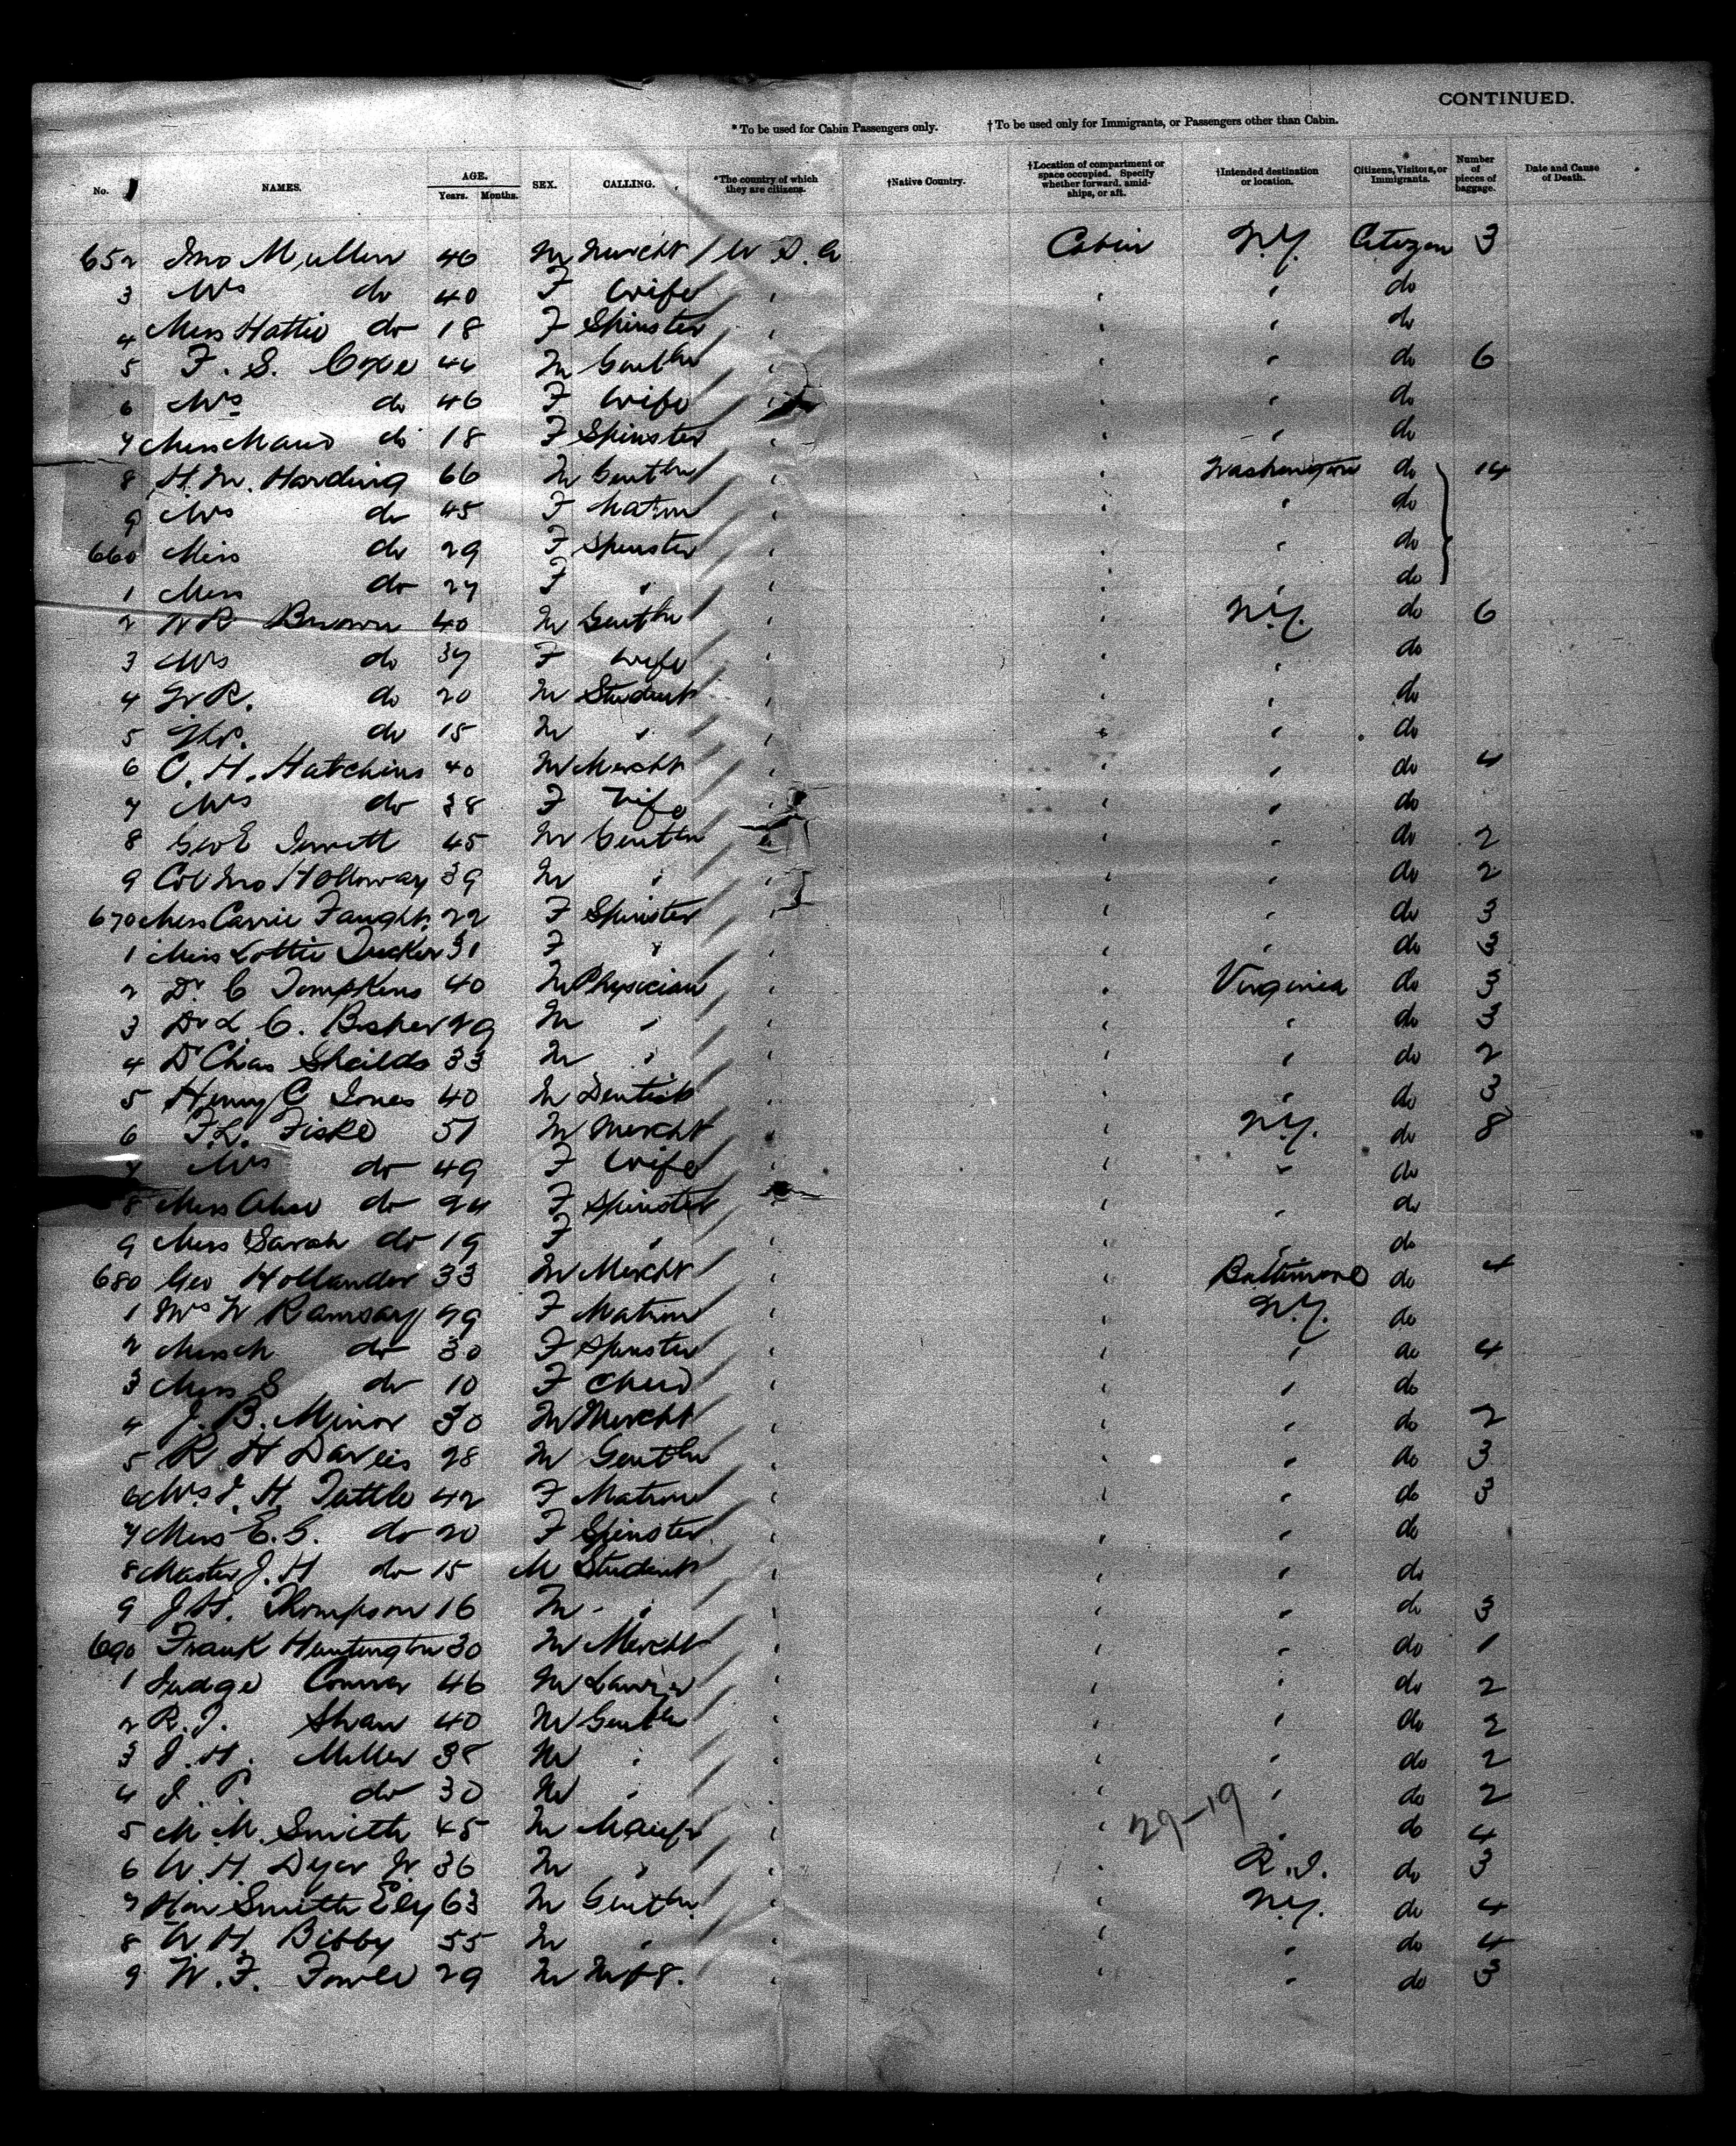 CONTINUED.
* To be used for Cabin Passengers only. † To be used only for Immigrants, or Passengers other than Cabin.
No. NAMES. AGE. Years. Months. SEX. CALLING. *The country of which they are citizens. †Native Country. †Location of compartment or space occupied. Specify whether forward, amidships, or aft. †Intended destination or location. Citizens, Visitors, or Immigrants. Number of pieces of baggage. Date and Cause of Death.
652 Jno Mullen 46 M Mercht U.S.A Cabin N.Y. Citizen 3
3 Mrs do 40 F Wife " " " do
4 Miss Hattie do 18 F Spinster " " " do
5 F. S. Cope 44 M Gentln " " " do 6
6 Mrs do 46 F Wife " " do
7 Miss Maud do 18 F Spinster " " " do
8 H. M. Harding 66 M Gentln " " Washington do 14
9 Mrs do 45 F Matron " " " do
660 Miss do 29 F Spinster " " " do
1 Miss do 27 F " " " " do
2 W R Brown 40 M Gentln " " N.Y. do 6
3 Mrs do 37 F Wife " " " do
4 W R. do 20 M Student " " " do
5 do 15 M " " " " do
6 C. H. Hutchins 40 M Mercht " " " do 4
7 Mrs do 38 F Wife " " " do
8 Geo E Jewett 45 M Gentln " " " do 2
9 Col Jno Holloway 39 M " " " " do 2
670 Miss Carrie Faught 22 F Spinster " " " do 3
1 Miss Lottie Tucker 31 F " " " " do 3
2 Dr C Tompkins 40 M Physician " " Virginia do 3
3 Dr L. C. Bosher 29 M " " " " do 3
4 Dr Chas Sheilds 33 M " " " " do 2
5 Henry C Jones 40 M Dentist " " " do 3
6 F. L. Fiske 51 M Mercht " " N.Y. do 8
7 Mrs do 49 F Wife " " " do
8 Miss Alice do 24 F Spinster " " do
9 Miss Sarah do 19 F " " " " do
680 Geo Hollander 33 M Mercht " " Baltimore do 4
1 Mrs W Ramsay 49 F Matron " " N.Y. do
2 Miss M do 30 F Spinster " " " do 4
3 Miss S do 10 F Child " " " do
4 J. B. Minor 30 M Mercht " " " do 2
5 R H Davies 28 M Gentln " " " do 3
6 Mrs J. H. Tuttle 42 F Matron " " " do 3
7 Miss E. G. do 20 F Spinster " " " do
8 Master J. H do 15 M Student " " " do
9 J. H. Thompson 16 M " " " " do 3
690 Frank Huntington 30 M Mercht " " " do 1
1 Judge Connor 46 M " " " do 2
2 R. J. Shaw 40 M Gentln " " " do 2
3 J. H. Miller 38 M " " " " do 2
4 J. P. do 30 M " " " " do 2
29-19
5 M. M. Smith 45 M Manfr " " " do 4
6 W. H. Dyer Jr. 36 M " " " R.I. do 3
7 Hon Smith Ely 63 M Gentln " " N.Y. do 4
8 W H. Bibby 55 M " " " " do 4
9 W. F. Fowle 29 M " " " do 3